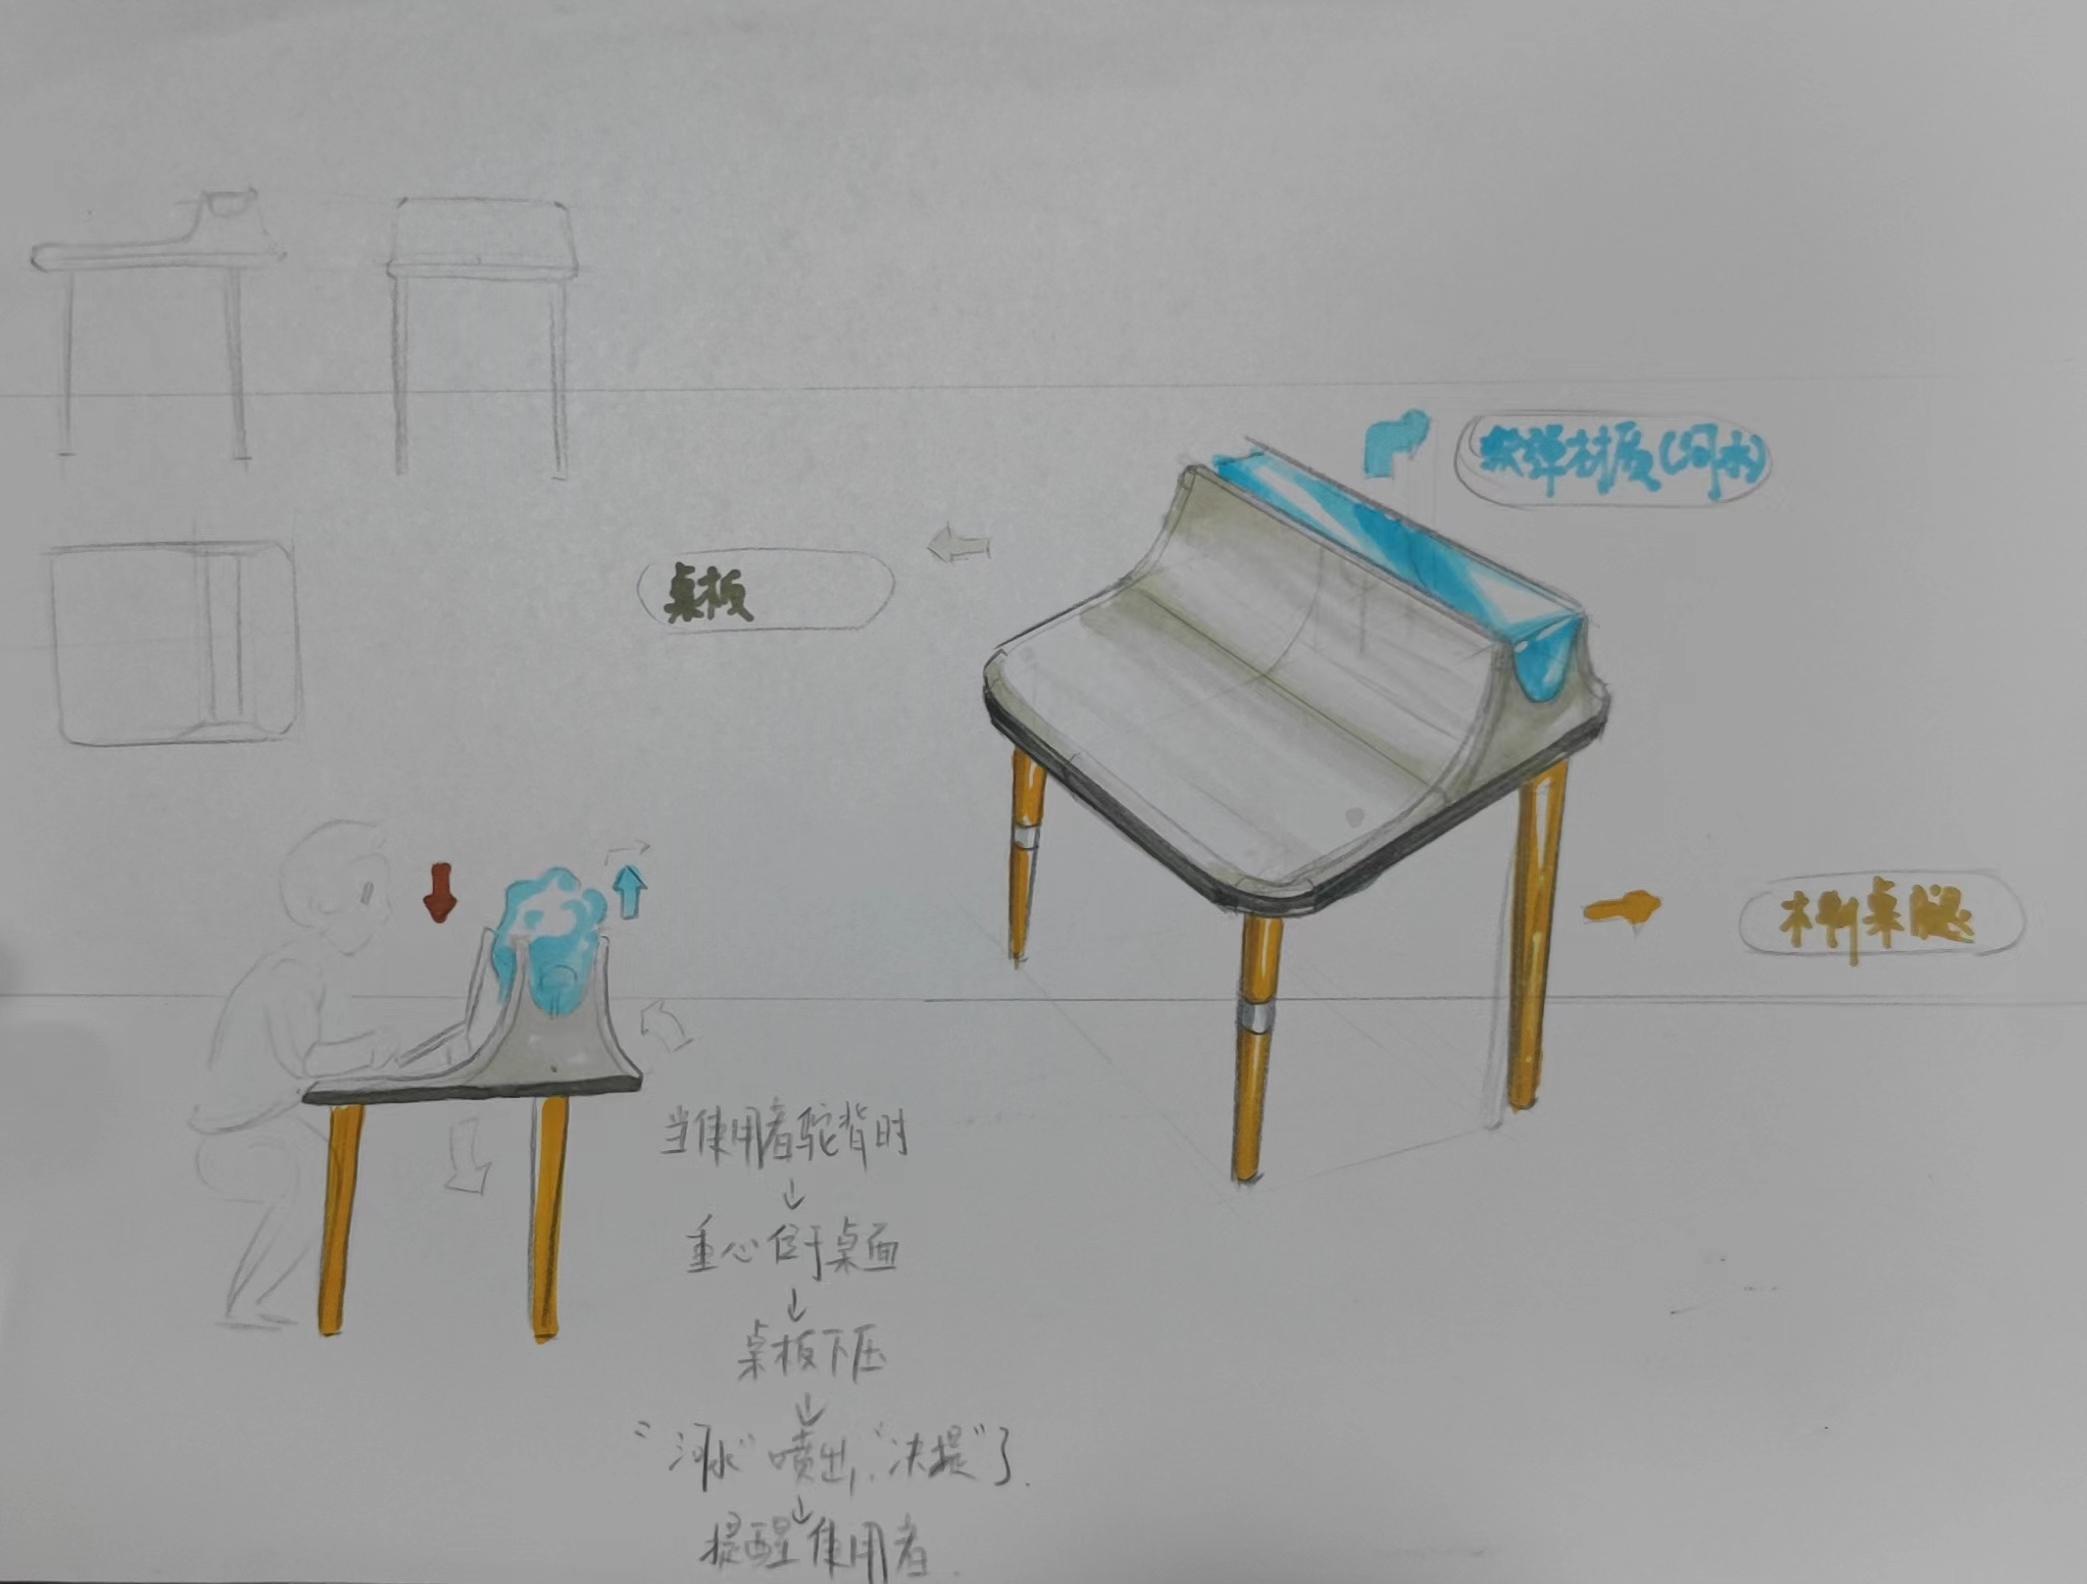 软弹材质(河水)
桌板
木制桌腿
当使用者驼背时
↓
重心位于桌面
↓
桌板下压
↓
"河水"喷出,"决提"了.
↓
提醒使用者.